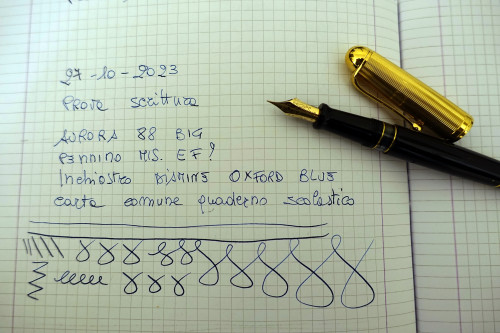 27-10-2023
Prove scrittura
AURORA 88 BIG
PENNINO MIS. EF?
Inchiostro DIAMINE OXFORD BLUE
carta comune quaderno scolastico